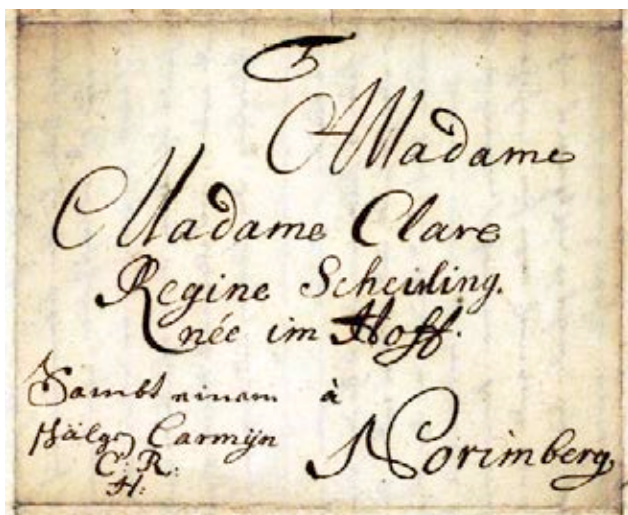 Madame
Madame Clare
Regine Scheirling.
née im Hoff.
Sambt einem à
schälgen Carmijn Norimberg
C: R:
H: